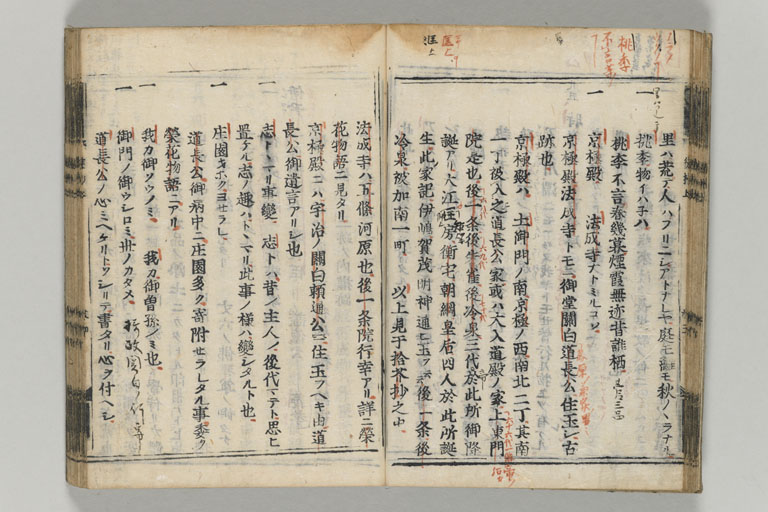 里ハ荒テ人ハフリニシアトナレヤ庭モ籬モ秋ノハラナル
一 桃李物イハネハ
桃李不言春幾暮煙霞無迹昔誰栖
一 京極殿 法成寺ナトミルコソ
京極殿法成寺トモニ御堂關白道長公住玉シ古
跡也
京極殿ハ土御門ノ南京極ノ西南北二丁其南
一丁後入之道長公家或ハ大入道殿ノ家上東門
院是也後一条後朱雀後冷泉三代於此所御降
誕アリ大江匡房衝宅朝綱皇后四人於此所誕
生此家記伊嶋賀茂明神通ヒ玉フ 後一条後
冷泉被加南一町 以上見于拾芥抄之中
法成寺ハ九條河原也後一条院行幸アリ詳ニ榮
花物語ニ見タリ
京極殿ニハ宇治ノ關白頼通公ニ住玉フヘキ由道
長公御遺言アリシ也
一 志トヽマリ事變 志トハ昔シ主人ノ後代マテト思ヒ
置ケル志ノ趣ハトヽマリ此事ノ様ハ變シタルト也
一 庄園オホクヨセラレ
道長公御病中ニ庄園多ク寄附セラレタル事委ク
榮花物語ニアリ
一 我カ御ゾウノミ 我カ御曽孫ノミ也
一 御門ノ御ウシロミ世ノカタメ
道長公ノ心ミヘケリトソシリテ書タリ心ヲ付ヘシ
桃李
不言